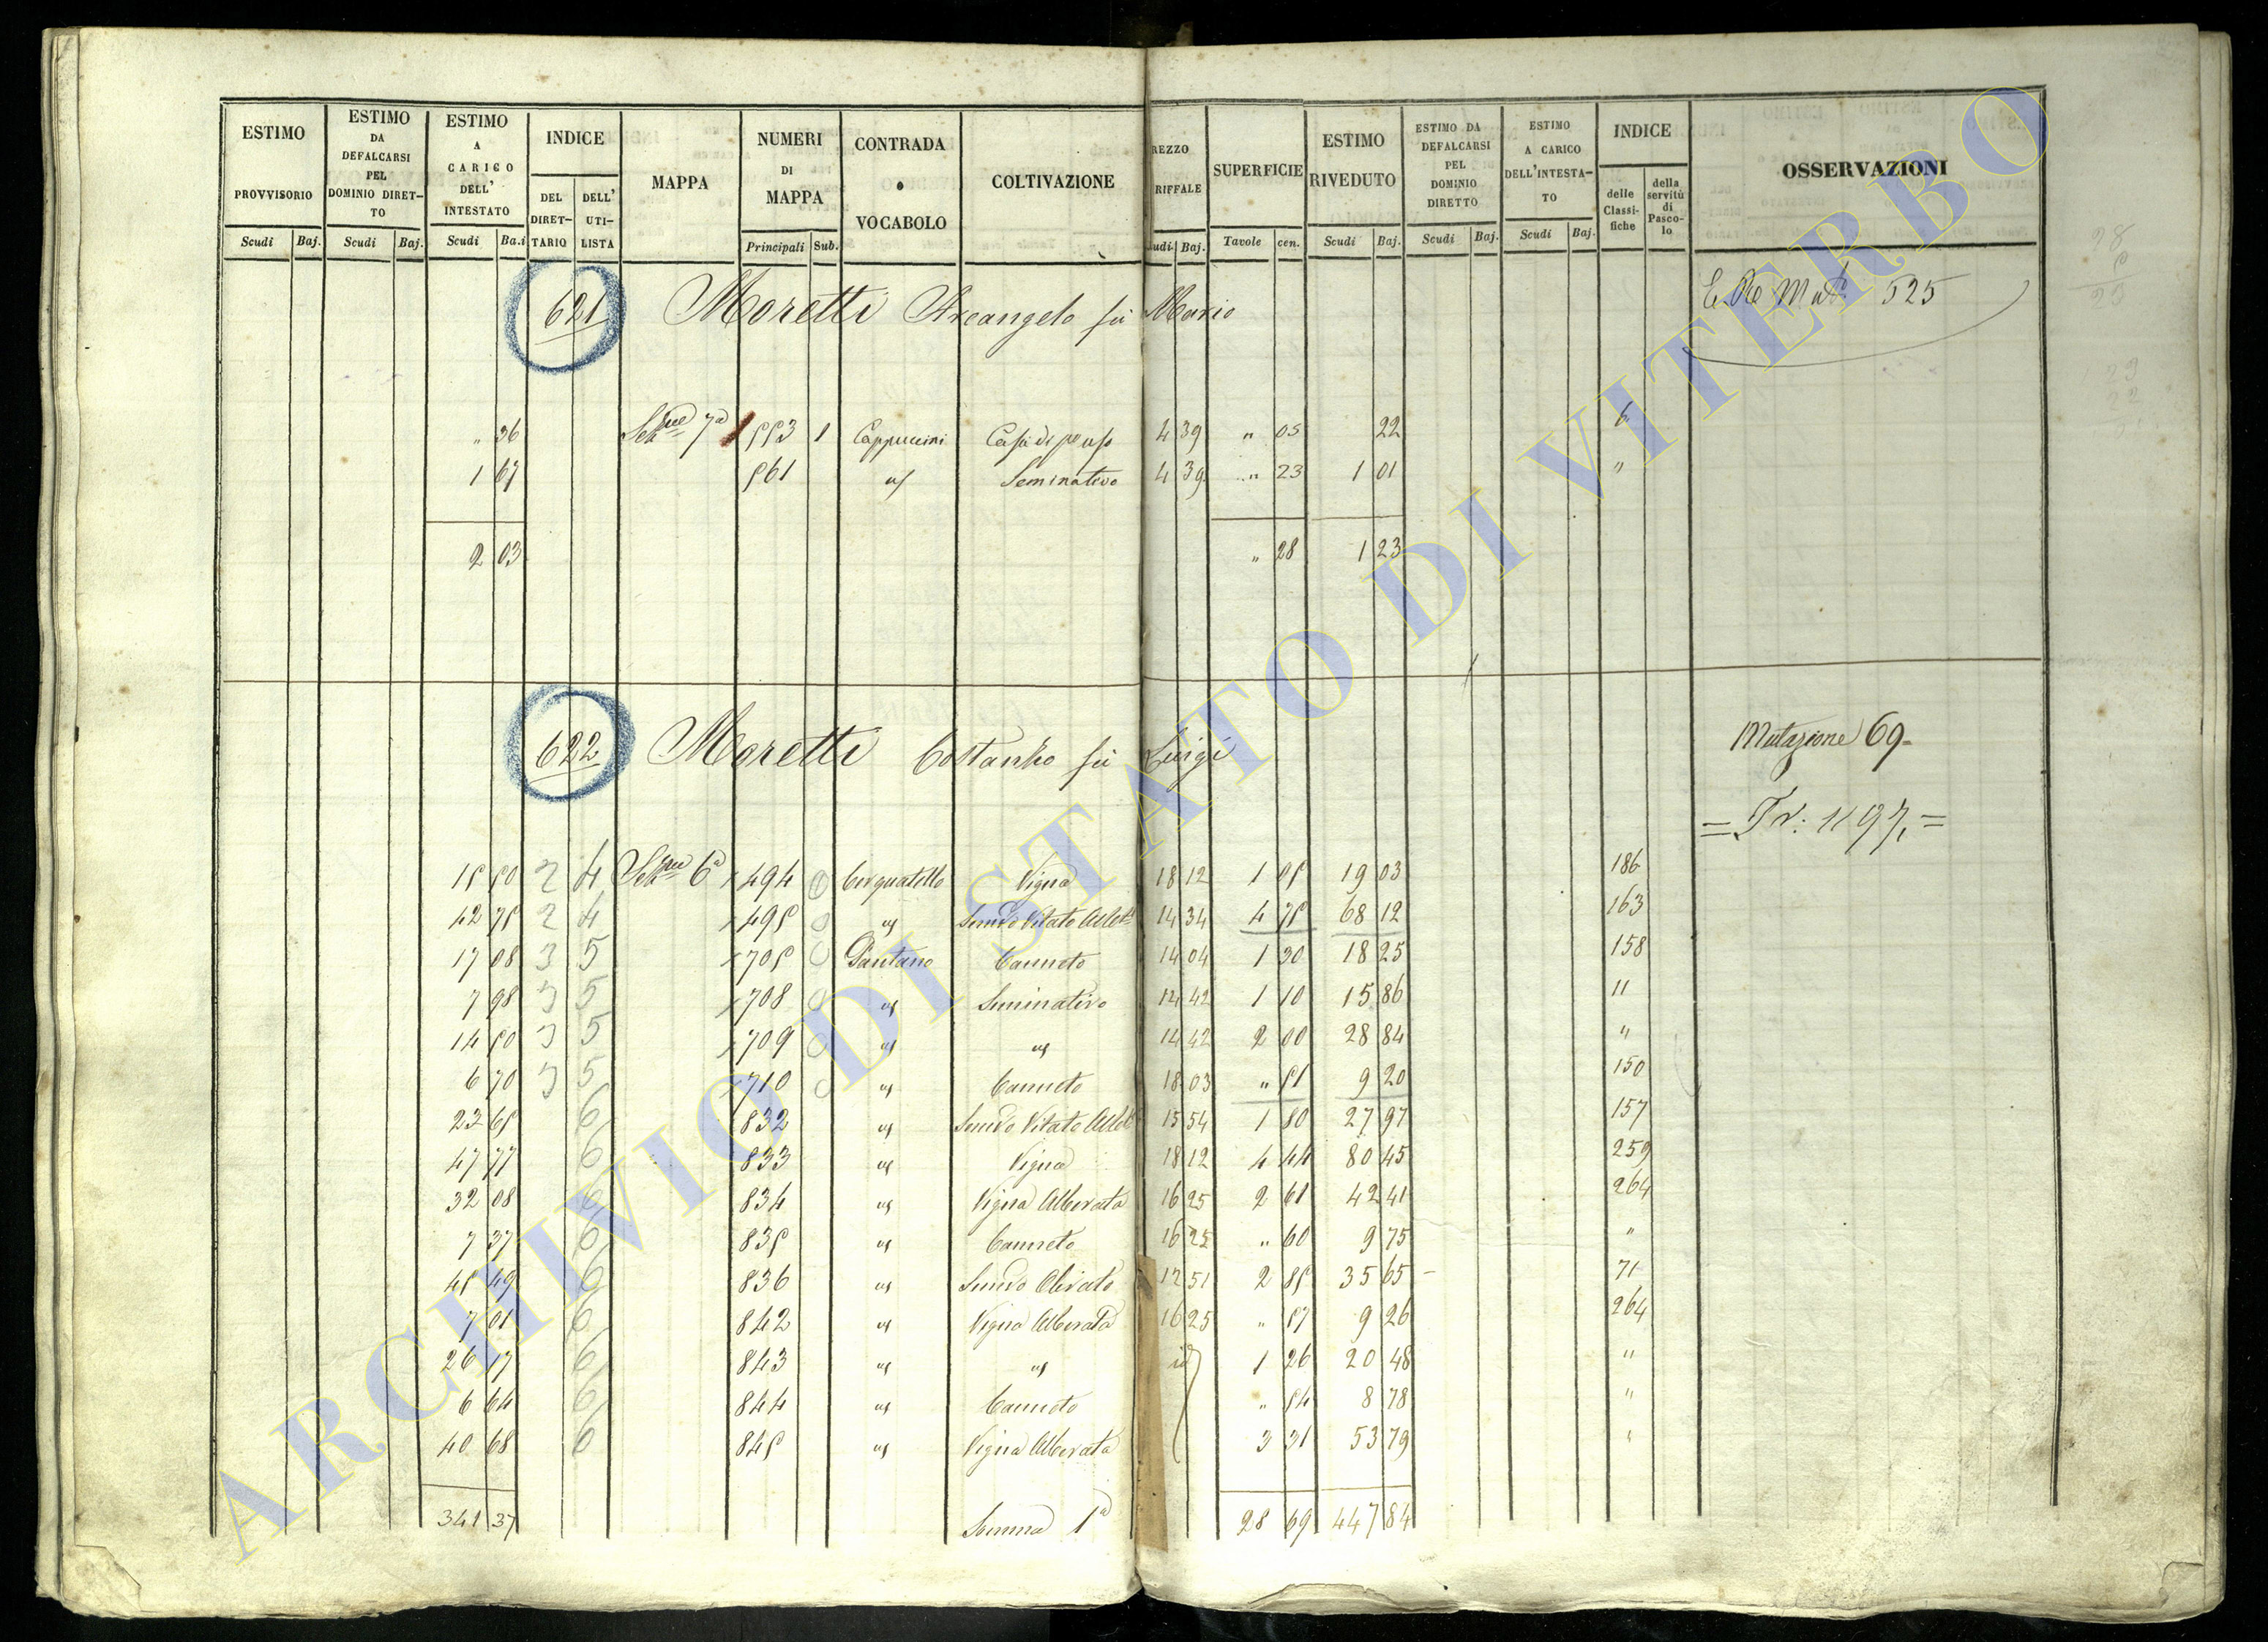 ESTIMO PROVVISORIO | ESTIMO DA DEFALCARSI PEL DOMINIO DIRETTO | ESTIMO A CARICO DELL' INTESTATO | INDICE | MAPPA | NUMERI DI MAPPA | CONTRADA o VOCABOLO | COLTIVAZIONE | REZZO RIFFALE | SUPERFICIE | ESTIMO RIVEDUTO | ESTIMO DA DEFALCARSI PEL DOMINIO DIRETTO | ESTIMO A CARICO DELL'INTESTATO | INDICE | OSSERVAZIONI
DEL DIRETTARIO | DELL' UTILISTA | delle Classifiche | della servitù di Pascolo
Scudi | Baj. | Scudi | Baj. | Scudi | Ba.i | Principali | Sub. | udi | Baj. | Tavole | cen. | Scudi | Baj. | Scudi | Baj. | Scudi | Baj.
621 Moretti Arcangelo fù Mario 525
" 36 7a 553 1 Cappuccini 4 39 " 05 22 6
1 67 561 Seminativo 4 39 " 23 1 01 "
2 03 " 28 1 23
622 Moretti Costanzo fù Luigi Mutazione 69
= Tr: 1197, =
15 50 2 4 6a 494 Cerquatello Vigna 18 12 1 05 19 03 186
42 75 2 4 495 Vitato 14 34 4 75 68 12 163
17 08 3 5 705 Pantano Canneto 14 04 1 30 18 25 158
7 98 3 5 708 Seminativo 14 42 1 10 15 86 "
14 50 3 5 709 14 42 2 00 28 84 "
6 70 3 5 710 Canneto 18 03 " 51 9 20 150
23 65 6 832 Vitato 15 54 1 80 27 97 157
47 77 6 833 Vigna 18 12 4 44 80 45 259
32 08 6 834 Vigna Alberata 16 25 2 61 42 41 264
7 37 6 835 Canneto 16 25 " 60 9 75 "
45 49 6 836 Olivato 12 51 2 85 35 65 71
7 01 6 842 Vigna Alberata 16 25 " 57 9 26 264
26 17 6 843 id 1 26 20 48 "
6 64 6 844 Canneto " 54 8 78 "
40 68 6 845 Vigna Alberata 3 31 53 79 "
341 37 Somma 1a 28 69 447 84
ARCHIVIO DI STATO DI VITERBO